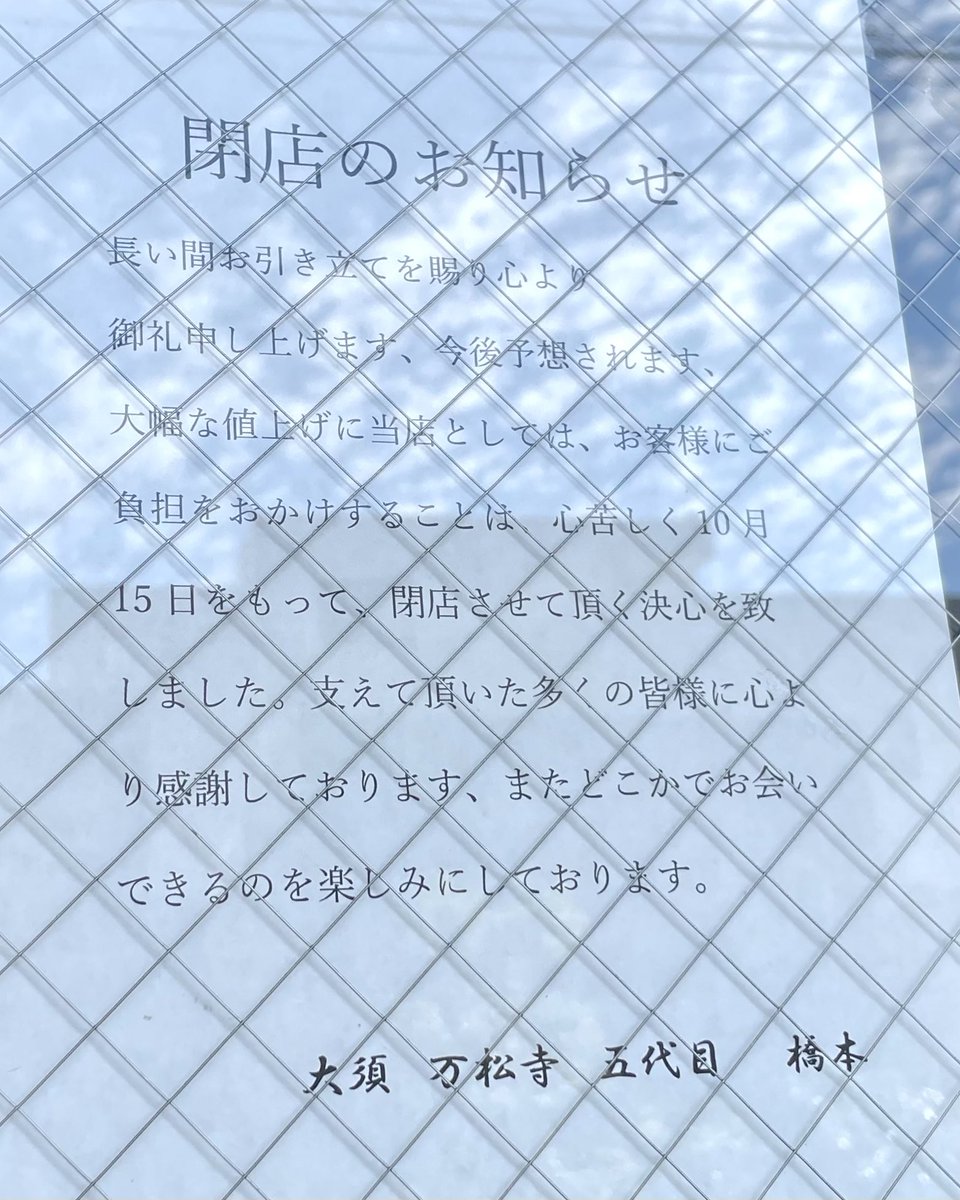 閉店のお知らせ
長い間お引き立てを賜り心より
御礼申し上げます、今後予想されます、
大幅な値上げに当店としては、お客様にご
負担をおかけすることは、心苦しく10月
15日をもって、閉店させて頂く決心を致
しました。支えて頂いた多くの皆様に心よ
り感謝しております、またどこかでお会い
できるのを楽しみにしております。
大須　万松寺　五代目　橋本